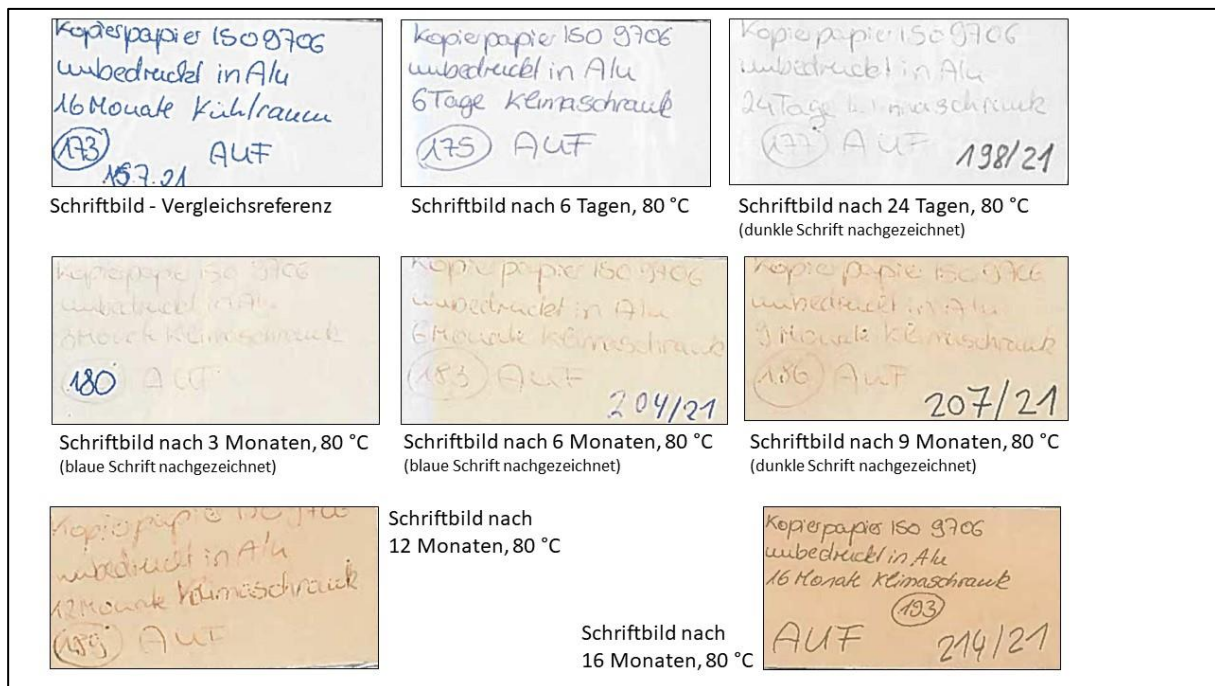 Kopierpapier ISO 9706
unbedruckt in Alu
16 Monate Kühlraum
173 AUF
15.7.21
Schriftbild - Vergleichsreferenz
Kopierpapier ISO 9706
unbedruckt in Alu
6 Tage Klimaschrank
175 AUF
Schriftbild nach 6 Tagen, 80 °C
Kopierpapier ISO 9706
unbedruckt in Alu
24 Tage Klimaschrank
177 AUF 198/21
Schriftbild nach 24 Tagen, 80 °C
(dunkle Schrift nachgezeichnet)
Kopierpapier ISO 9706
unbedruckt in Alu
3 Monate Klimaschrank
180 AUF
Schriftbild nach 3 Monaten, 80 °C
(blaue Schrift nachgezeichnet)
Kopierpapier ISO 9706
unbedruckt in Alu
6 Monate Klimaschrank
183 AUF
204/21
Schriftbild nach 6 Monaten, 80 °C
(blaue Schrift nachgezeichnet)
Kopierpapier ISO 9706
unbedruckt in Alu
9 Monate Klimaschrank
186 AUF
207/21
Schriftbild nach 9 Monaten, 80 °C
(dunkle Schrift nachgezeichnet)
Kopierpapier ISO 9706
unbedruckt in Alu
12 Monate Klimaschrank
189 AUF
Schriftbild nach
12 Monaten, 80 °C
Kopierpapier ISO 9706
unbedruckt in Alu
16 Monate Klimaschrank
193
AUF 214/21
Schriftbild nach
16 Monaten, 80 °C